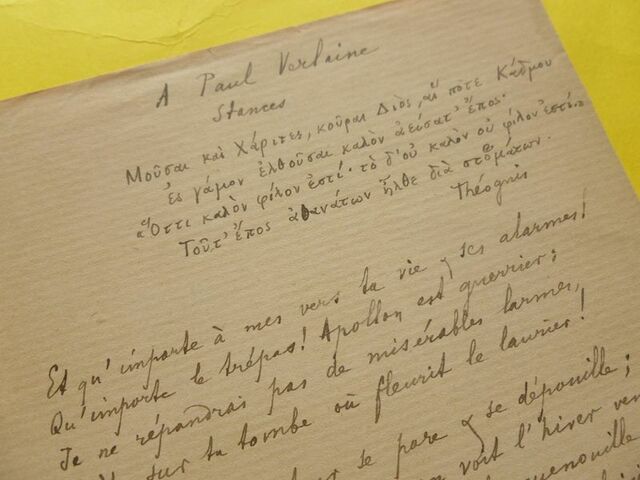 A Paul Verlaine
Stances
Μοῦσαι καὶ Χάριτες, κοῦραι Διὸς, αἵ ποτε Κάδμου
ἐς γάμον ἐλθοῦσαι καλὸν ἀείσατ' ἔπος·
Ὅττι καλὸν φίλον ἐστί· τὸ δ' οὐ καλὸν οὐ φίλον ἐστίν.
Τοῦτ' ἔπος ἀθανάτων ἦλθε διὰ στομάτων.
Théognis
Et qu'importe à mes vers ta vie & ses alarmes!
Qu'importe le trépas! Apollon est guerrier:
Je ne répandrai pas de misérables larmes,
sur ta tombe où fleurit le laurier!
se pare & se dépouille;
voit l'hiver
quenouille